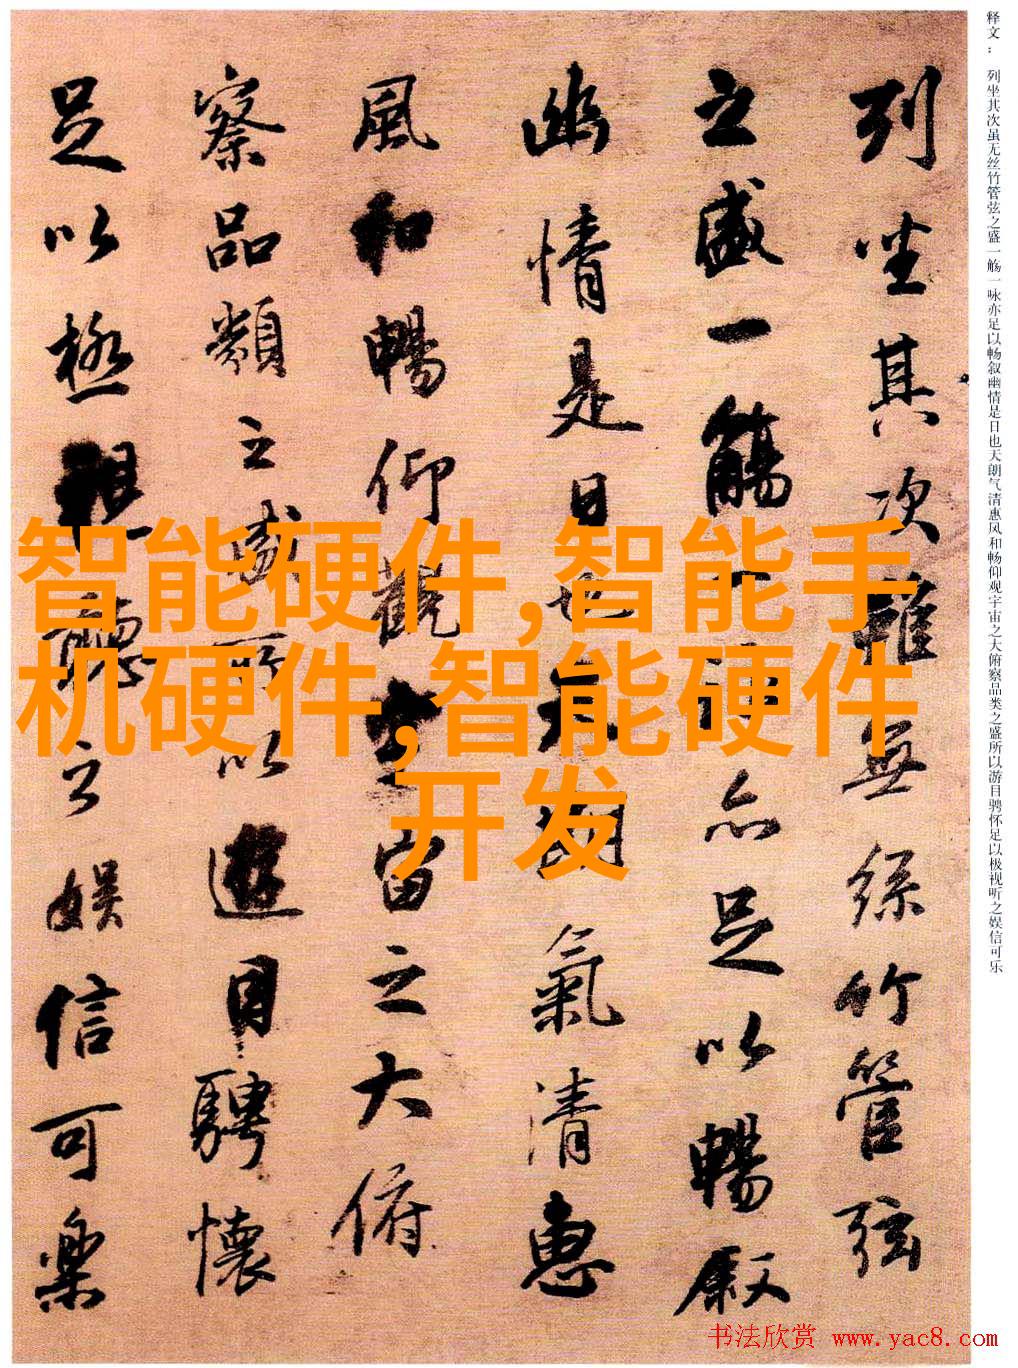 释文： 列坐其次虽无丝竹管弦之盛一觞一咏亦足以畅叙幽情是日也天朗气清惠风和畅仰观宇宙之大俯察品类之盛所以游目骋怀足以极视听之娱信可乐
列坐其次雖無絲竹管弦
之盛一觴一詠亦足以暢叙
幽情是日也天朗氣清惠
風和暢仰觀宇宙之大俯
察品類之盛所以遊目騁懷
足以極視聽之娛信可樂
智能硬件,智能手
机硬件,智能硬件
开发
书法欣赏 www.yac8.com